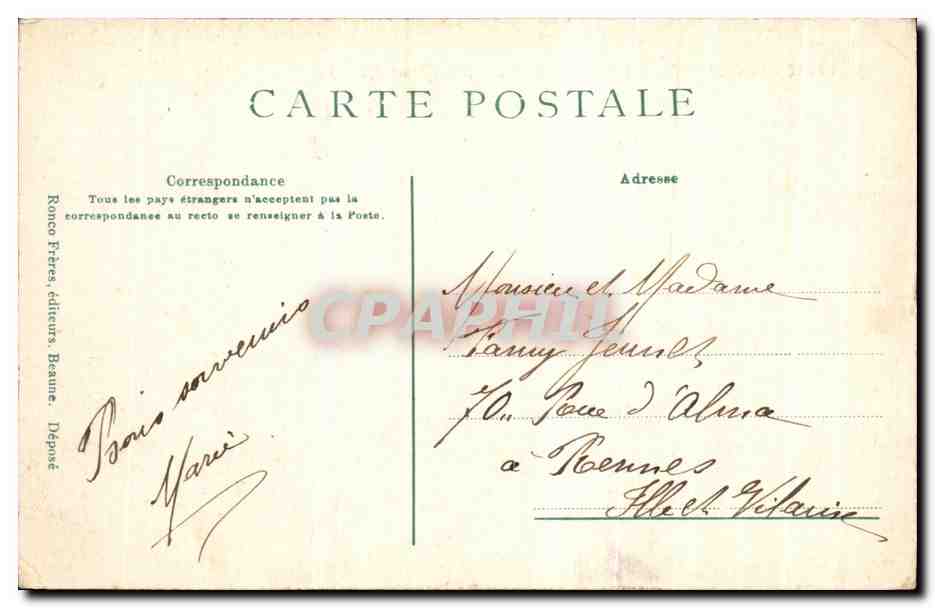 CARTE POSTALE
Correspondance
Tous les pays étrangers n'acceptent pas la
correspondance au recto se renseigner à la Poste.
Ronco Frères, éditeurs, Beaune. Déposé
Bons souvenirs
Marie
Adresse
Monsieur et Madame
70 Rue d'Alma
à Rennes
Ille et Vilaine
CPAPHIL